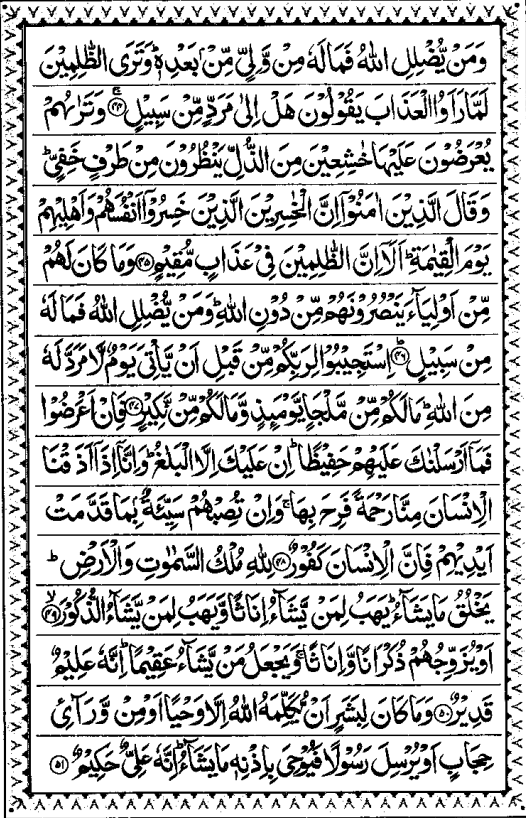 وَمَنْ يُّضْلِلِ اللّٰهُ فَمَا لَهٗ مِنْ وَّلِيٍّ مِّنْۢ بَعْدِهٖ ؕ وَتَرَى الظّٰلِمِيْنَ
لَمَّا رَاَوُا الْعَذَابَ يَقُوْلُوْنَ هَلْ اِلٰى مَرَدٍّ مِّنْ سَبِيْلٍ ۚ‏﴿۴۴﴾ وَتَرٰٮهُمْ
يُعْرَضُوْنَ عَلَيْهَا خٰشِعِيْنَ مِنَ الذُّلِّ يَنْظُرُوْنَ مِنْ طَرْفٍ خَفِيٍّ ؕ
وَقَالَ الَّذِيْنَ اٰمَنُوْۤا اِنَّ الْخٰسِرِيْنَ الَّذِيْنَ خَسِرُوْۤا اَنْفُسَهُمْ وَاَهْلِيْهِمْ
يَوْمَ الْقِيٰمَةِ ؕ اَلَاۤ اِنَّ الظّٰلِمِيْنَ فِيْ عَذَابٍ مُّقِيْمٍ ﴿۴۵﴾ وَمَا كَانَ لَهُمْ
مِّنْ اَوْلِيَآءَ يَنْصُرُوْنَهُمْ مِّنْ دُوْنِ اللّٰهِ ؕ وَمَنْ يُّضْلِلِ اللّٰهُ فَمَا لَهٗ
مِنْ سَبِيْلٍ ؕ‏﴿۴۶﴾ اِسْتَجِيْبُوْا لِرَبِّكُمْ مِّنْ قَبْلِ اَنْ يَّاْتِيَ يَوْمٌ لَّا مَرَدَّ لَهٗ
مِنَ اللّٰهِ ؕ مَا لَكُمْ مِّنْ مَّلْجَاٍ يَّوْمَئِذٍ وَّمَا لَكُمْ مِّنْ نَّكِيْرٍ ﴿۴۷﴾ فَاِنْ اَعْرَضُوْا
فَمَاۤ اَرْسَلْنٰكَ عَلَيْهِمْ حَفِيْظًا ؕ اِنْ عَلَيْكَ اِلَّا الْبَلٰغُ ؕ وَاِنَّاۤ اِذَاۤ اَذَقْنَا
الْاِنْسَانَ مِنَّا رَحْمَةً فَرِحَ بِهَا ۚ وَاِنْ تُصِبْهُمْ سَيِّئَةٌۢ بِمَا قَدَّمَتْ
اَيْدِيْهِمْ فَاِنَّ الْاِنْسَانَ كَفُوْرٌ ﴿۴۸﴾ لِلّٰهِ مُلْكُ السَّمٰوٰتِ وَالْاَرْضِ ؕ
يَخْلُقُ مَا يَشَآءُ ؕ يَهَبُ لِمَنْ يَّشَآءُ اِنَاثًا وَّيَهَبُ لِمَنْ يَّشَآءُ الذُّكُوْرَ ۙ‏﴿۴۹﴾
اَوْ يُزَوِّجُهُمْ ذُكْرَانًا وَّاِنَاثًا ۚ وَيَجْعَلُ مَنْ يَّشَآءُ عَقِيْمًا ؕ اِنَّهٗ عَلِيْمٌ
قَدِيْرٌ ﴿۵۰﴾ وَمَا كَانَ لِبَشَرٍ اَنْ يُّكَلِّمَهُ اللّٰهُ اِلَّا وَحْيًا اَوْ مِنْ وَّرَآئِ
حِجَابٍ اَوْ يُرْسِلَ رَسُوْلًا فَيُوْحِيَ بِاِذْنِهٖ مَا يَشَآءُ ؕ اِنَّهٗ عَلِيٌّ حَكِيْمٌ ﴿۵۱﴾